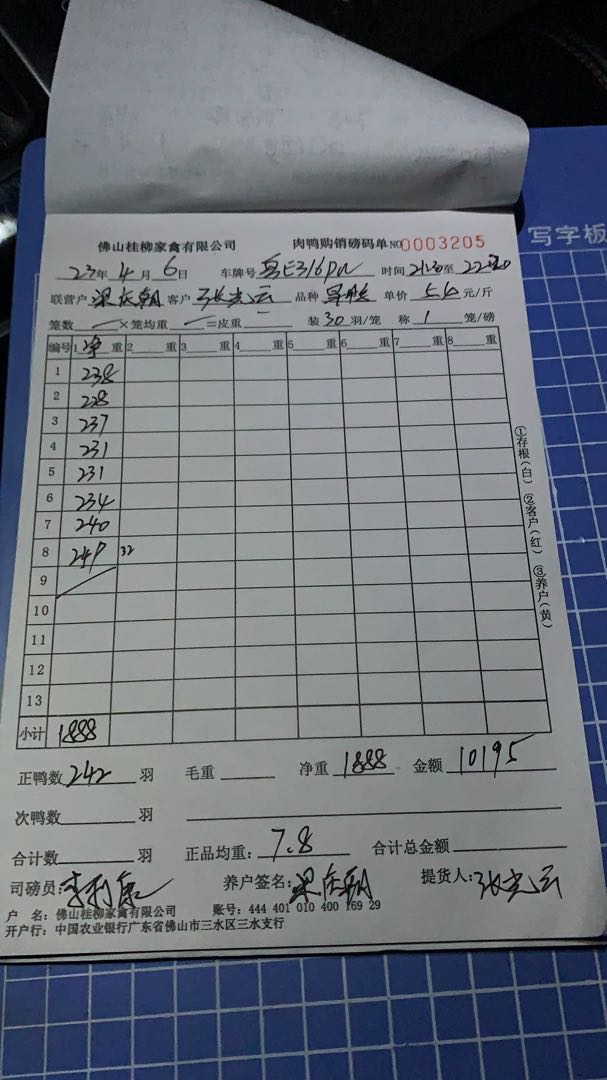 写字板
佛山桂柳家禽有限公司 肉鸭购销磅码单 NO 0003205
23年 4月 6日 车牌号 时间 至
联营户 梁庆朝 客户 张光云 品种 单价 5.4 元/斤
笼数 — ×笼均重 — =皮重 — 装 30 羽/笼 称 1 笼/磅
编号 1 净重 2 重 3 重 4 重 5 重 6 重 7 重 8 重
1 238
2 228
3 237
4 231
5 231
6 234
7 240
8 249 32
9
10
11
12
13
小计 1888
①存根(白) ②客户(红) ③养户(黄)
正鸭数 242 羽 毛重 净重 1888 金额 10195
次鸭数 羽
合计数 羽 正品均重: 7.8 合计总金额
司磅员: 李利康 养户签名: 梁庆朝 提货人: 张光云
户 名: 佛山桂柳家禽有限公司 账号: 444 401 010 400 169 29
开户行: 中国农业银行广东省佛山市三水区三水支行